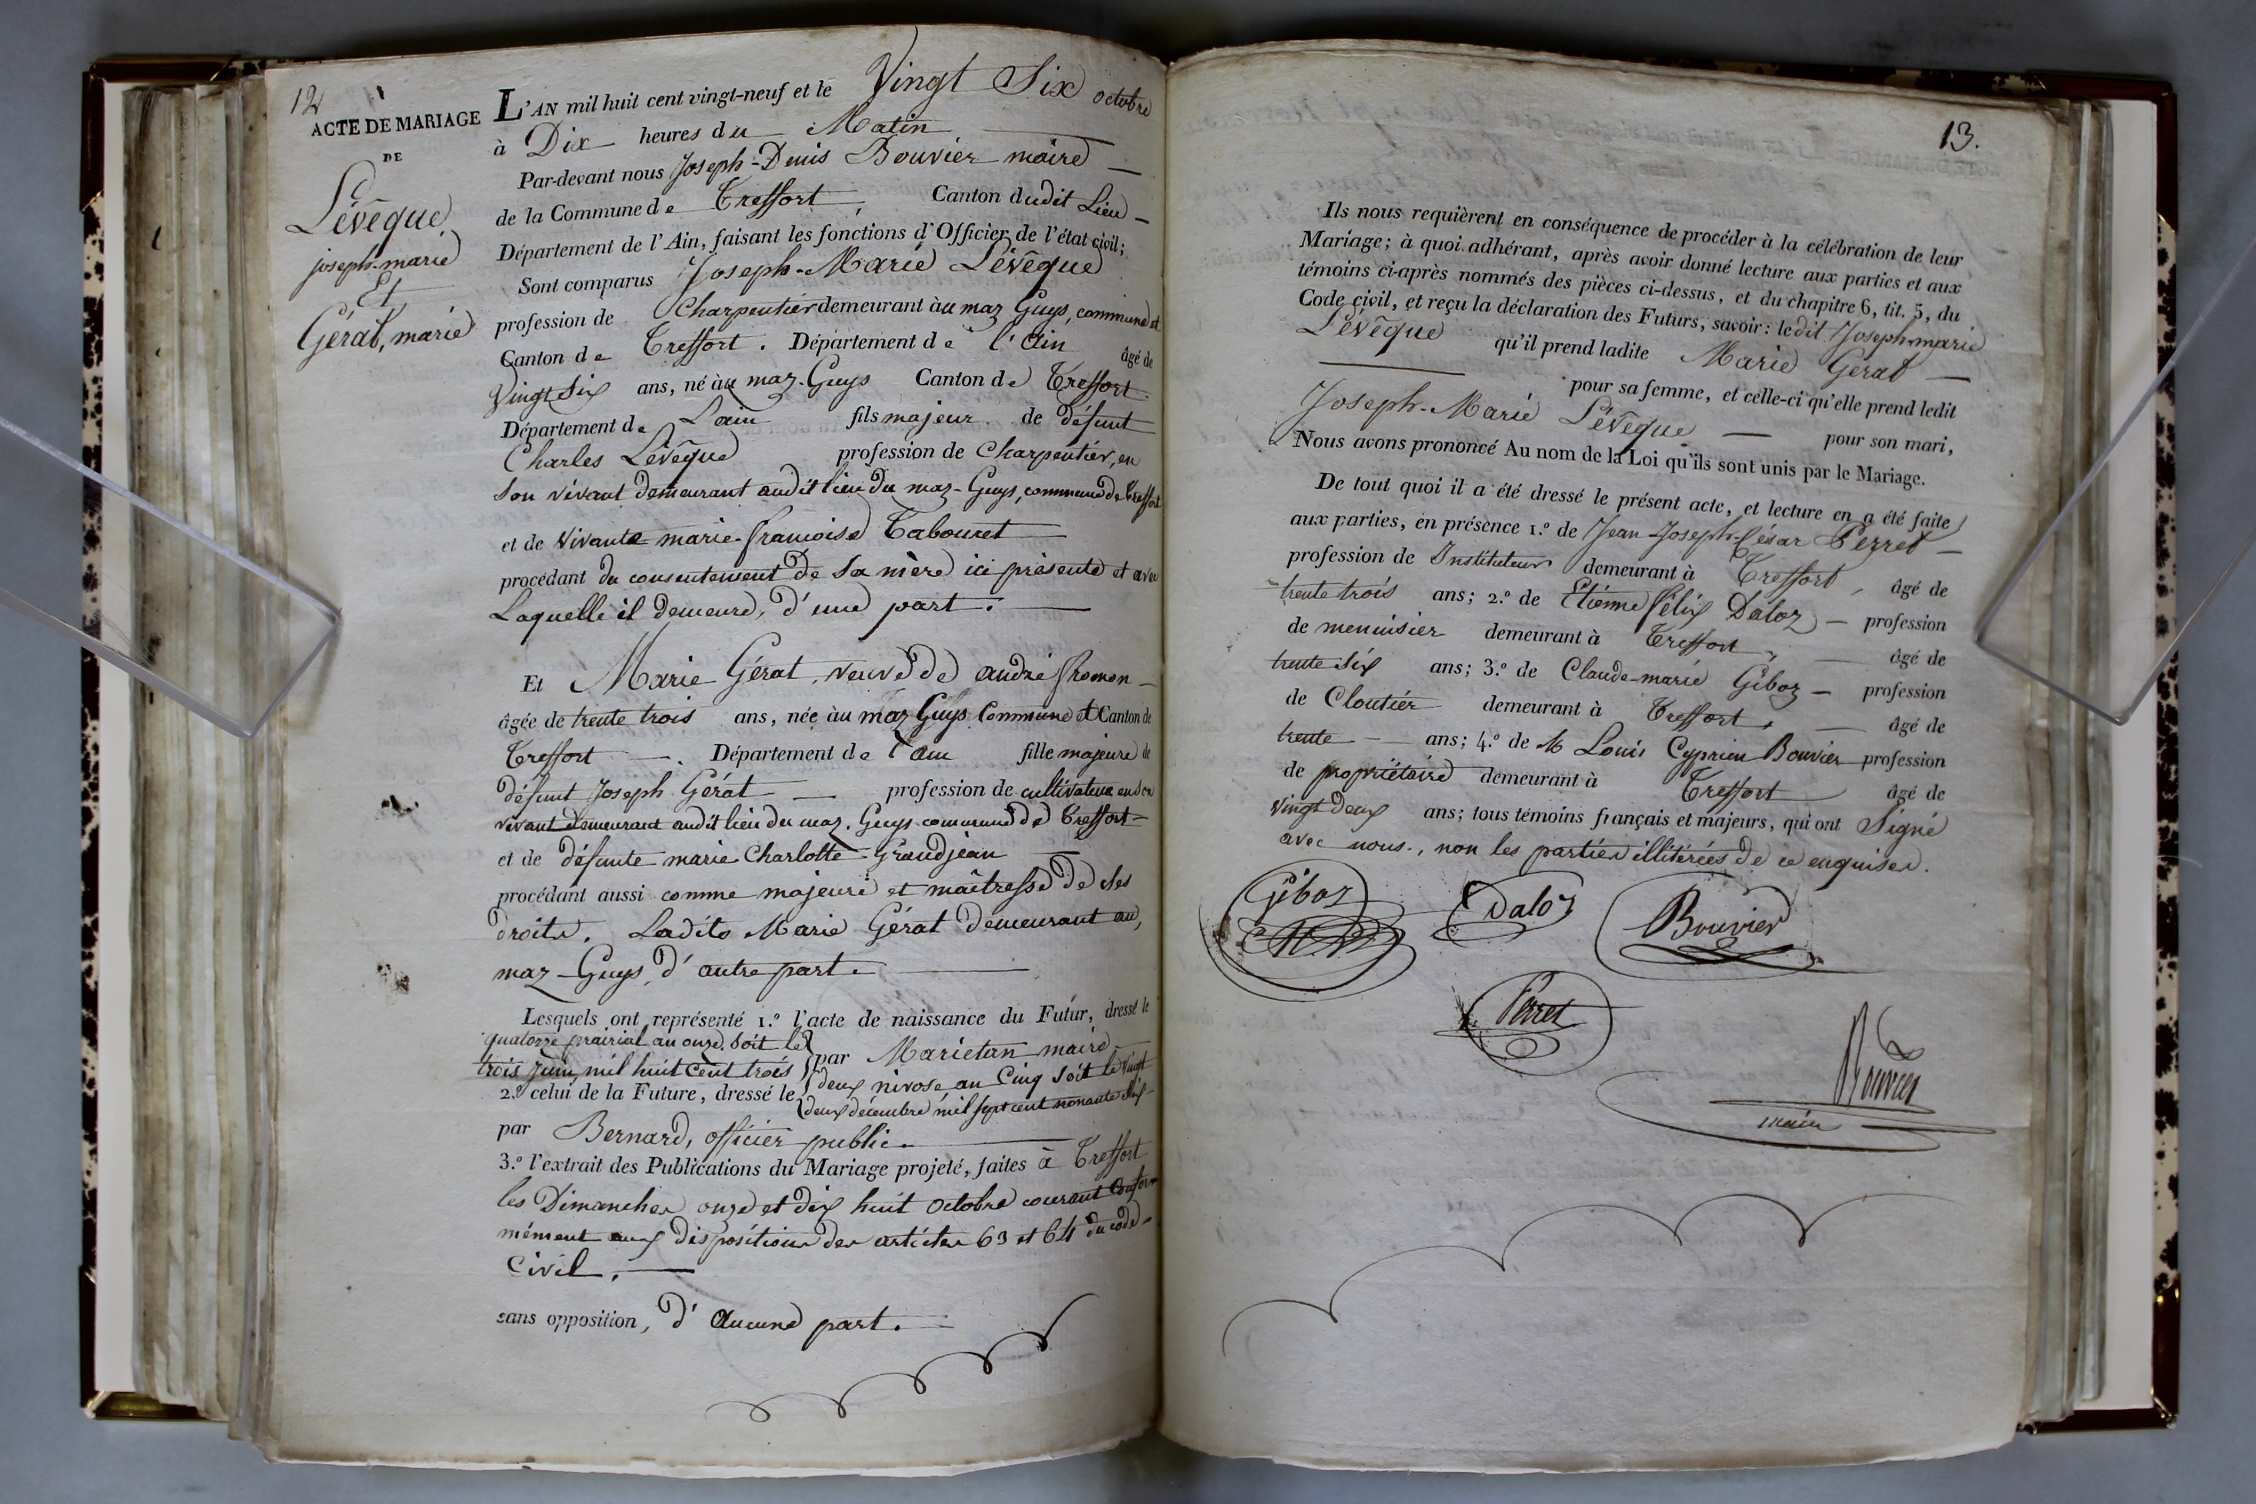 12
ACTE DE MARIAGE
DE
Lévêque
joseph-marie
Et
Gérat, marie
L'AN mil huit cent vingt-neuf et le Vingt Six octobre
à Dix heures du Matin
Par-devant nous Joseph-Denis Bouvier maire
de la Commune de Treffort, Canton dudit Lieu
Département de l'Ain, faisant les fonctions d'Officier de l'état civil;
Sont comparus Joseph-Marie Lévêque
profession de Charpentier demeurant au maz Guys, commune et
Canton de Treffort. Département de l'Ain âgé de
Vingt Six ans, né au maz-Guys Canton de Treffort
Département de Lain fils majeur de défunt
Charles Lévêque profession de Charpentier, en
Son vivant demeurant audit lieu du maz-Guys, commune de Treffort
et de vivante marie-francoise Tabouret
procédant du consentement de Sa mère ici présente et avec
Laquelle il demeure, d'une part.
Et Marie Gérat, veuve de andré fromon
âgée de trente trois ans, née au maz Guys Commune et Canton de
Treffort. Département de l'ain fille majeure de
défunt Joseph Gérat profession de cultivateur en son
vivant demeurant audit lieu du maz. Guys commune de Treffort
et de défunte marie Charlotte Grandjean
procédant aussi comme majeure et maîtresse de ses
droits. Ladite Marie Gérat demeurant au,
maz-Guys, d'autre part.
Lesquels ont représenté 1.º l'acte de naissance du Futur, dressé le
quatorze prairial an onze, soit le
trois juin mil huit cent trois par Marietan maire
2.º celui de la Future, dressé le deux nivose an Cinq soit le vingt
deux décembre mil sept cent nonante six
par Bernard, officier public.
3.º l'extrait des Publications du Mariage projeté, faites à Treffort
les Dimanches onze et dix huit octobre courant Confor-
mément aux dispositions des articles 63 et 64 du code
Civil.
sans opposition, d'aucune part.
13.
Ils nous requièrent en conséquence de procéder à la célébration de leur
Mariage; à quoi adhérant, après avoir donné lecture aux parties et aux
témoins ci-après nommés des pièces ci-dessus, et du chapitre 6, tit. 5, du
Code civil, et reçu la déclaration des Futurs, savoir: ledit Joseph-marie
Lévêque qu'il prend ladite Marie Gerat
pour sa femme, et celle-ci qu'elle prend ledit
Joseph-Marie Lévêque pour son mari,
Nous avons prononcé Au nom de la Loi qu'ils sont unis par le Mariage.
De tout quoi il a été dressé le présent acte, et lecture en a été faite
aux parties, en présence 1.º de Jean-Joseph-César Perret
profession de Instituteur demeurant à Treffort, âgé de
trente trois ans; 2.º de Etienne félix Daloz profession
de menuisier demeurant à Treffort, âgé de
trente six ans; 3.º de Claude-marie Giboz profession
de Cloutier demeurant à Treffort, âgé de
trente ans; 4.º de M Louis Cyprien Bouvier profession
de propriétaire demeurant à Treffort âgé de
vingt deux ans; tous témoins français et majeurs, qui ont Signé
avec nous, non les parties illitérées de ce enquises.
Giboz
Daloz
Bouvier
Perret
Bouvier
maire